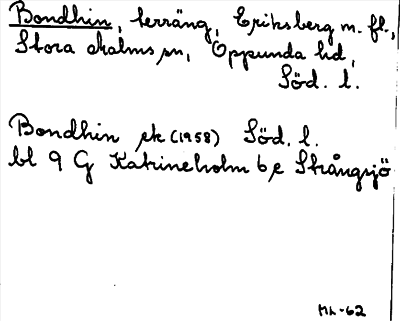 Bondhin, terräng, Eriksberg m. fl.,
Stora Malms sn, Oppunda hd,
Söd. l.
Bondhin ek (1958) Söd. l.
bl 9 G Katrineholm 6 e Strångsjö
ML-62